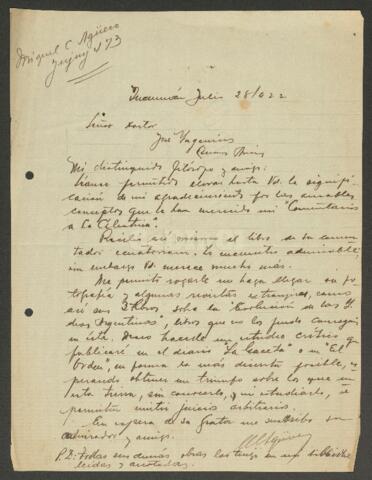 Miguel C. Agüero
Jujuy 473
Tucumán Julio 28/922
Señor doctor
José Ingenieros
Buenos Aires
Mi distinguido filósofo y amigo:
Séame permitido elevar hasta Ud. la significación
de mi agradecimiento por los amables
conceptos que le han merecido mi "Comentarios
a La Celestina".
Recibí así mismo el libro de su comentador
ecuatoriano. Lo encuentro admirable;
sin embargo Ud. merece mucho más.
Me permito rogarle me haga llegar su fotografía
y algunas revistas extranjeras, como
así sus libros sobre la "Evolución en las Ideas
Argentinas", libros que no los puedo conseguir
en ésta. Deseo hacerle un estudio crítico que
publicaré en el diario "La Gaceta" o en "El
Orden", en forma la más discreta posible, esperando
obtener un triunfo sobre los que en
esta tierra, sin conocerlo, ni estudiarlo, se
permiten emitir juicios arbitrarios.
En espera de su grata me suscribo su
admirador y amigo.
P.D: Todas sus demás obras las tengo en mi biblioteca
leídas y anotadas.